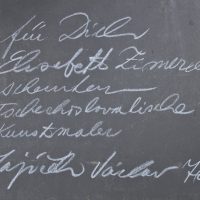 für Dich
Elisebeth Zimere
schenken
Tschechoslovakische
Kunstmaler
Václav